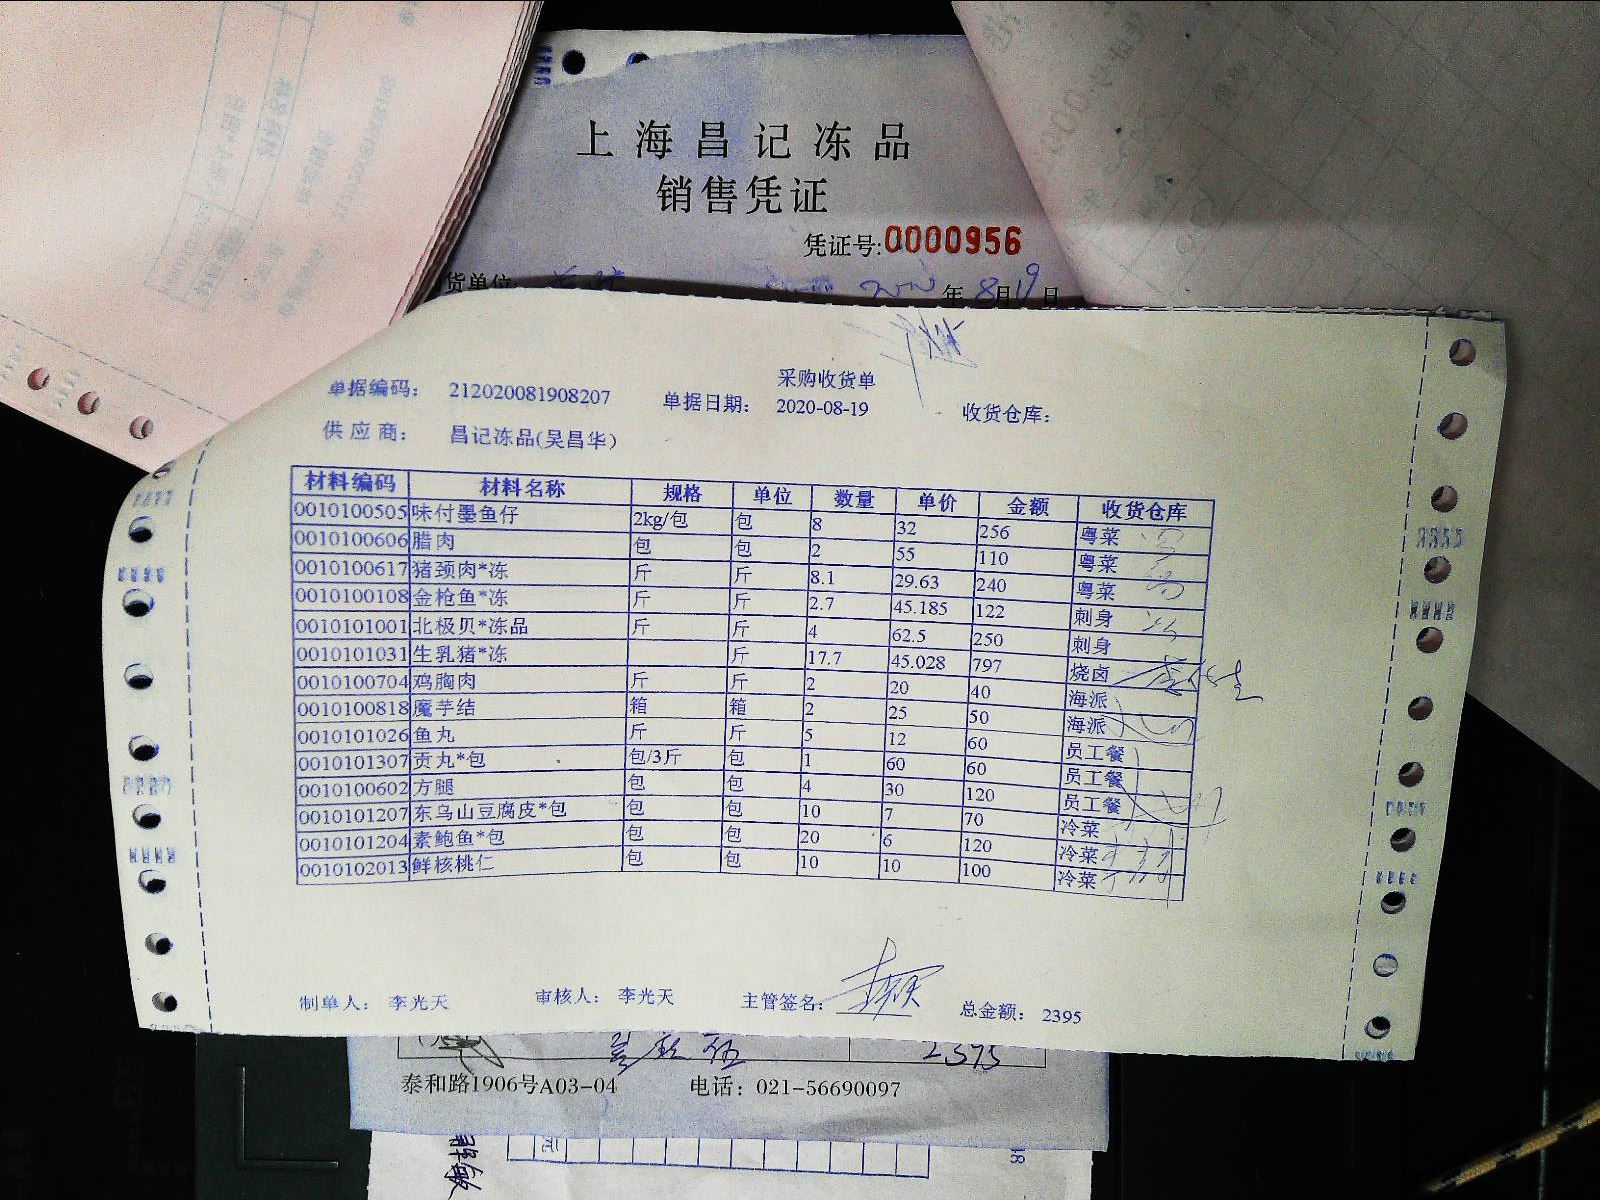 上海昌记冻品
销售凭证
凭证号:0000956
货单位 年8月19日
采购收货单
单据编码： 212020081908207 单据日期： 2020-08-19 收货仓库：
供应商： 昌记冻品(吴昌华)
材料编码 材料名称 规格 单位 数量 单价 金额 收货仓库
0010100505 味付墨鱼仔 2kg/包 包 8 32 256 粤菜
0010100606 腊肉 包 包 2 55 110 粤菜
0010100617 猪颈肉*冻 斤 斤 8.1 29.63 240 粤菜
0010100108 金枪鱼*冻 斤 斤 2.7 45.185 122 刺身
0010101001 北极贝*冻品 斤 斤 4 62.5 250 刺身
0010101031 生乳猪*冻 斤 17.7 45.028 797 烧卤
0010100704 鸡胸肉 斤 斤 2 20 40 海派
0010100818 魔芋结 箱 箱 2 25 50 海派
0010101026 鱼丸 斤 斤 5 12 60 员工餐
0010101307 贡丸*包 包/3斤 包 1 60 60 员工餐
0010100602 方腿 包 包 4 30 120 员工餐
0010101207 东乌山豆腐皮*包 包 包 10 7 70 冷菜
0010101204 素鲍鱼*包 包 包 20 6 120 冷菜
0010102013 鲜核桃仁 包 包 10 10 100 冷菜
制单人： 李光天 审核人： 李光天 主管签名： 总金额： 2395
2395
泰和路1906号A03-04 电话：021-56690097